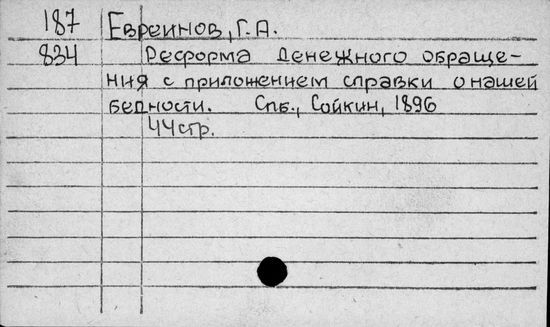 187 Евреинов, Г.А.
834 Реформа денежного обраще-
ния с приложением справки о нашей
бедности. Спб., Сойкин, 1896
44 стр.